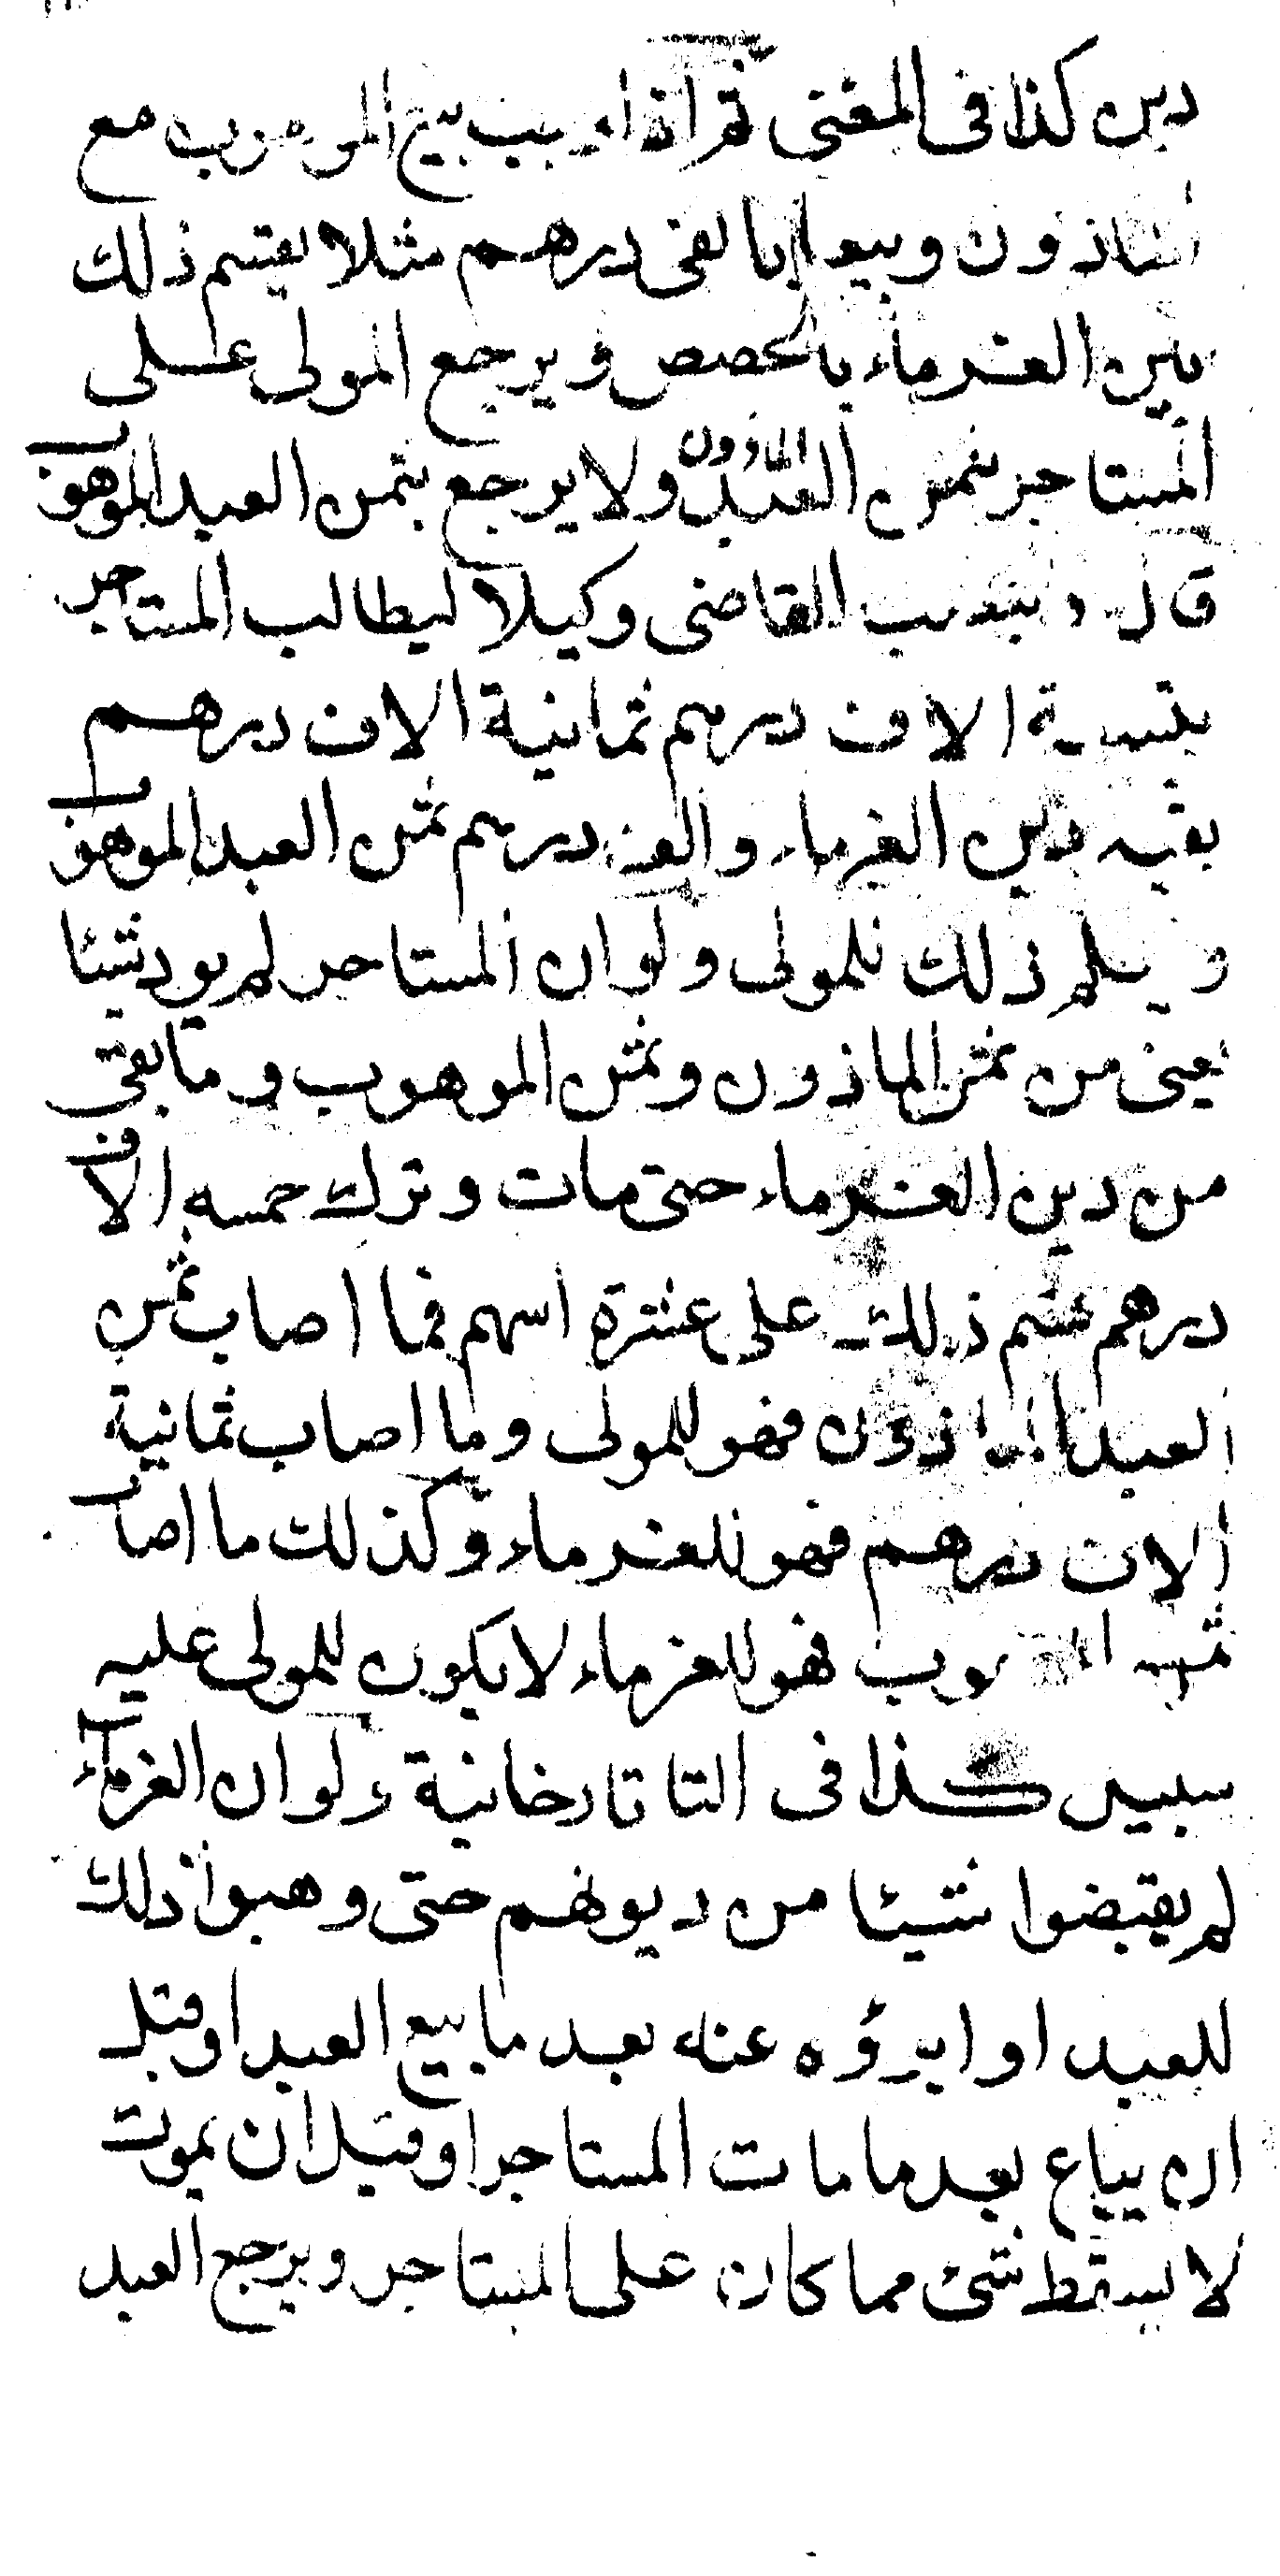 دين كذا فى المغنى ثم اذا وجب بيع الموهوب مع
الماذون وبيعا بالفى درهم مثلا يقسم ذلك
بين الغرماء بالحصص ويرجع المولى على
المستاجر بثمن العبد الماذون ولا يرجع بثمن العبد الموهوب
قال وينصب القاضى وكيلا ليطالب المستاجر
بتسعة الاف درهم ثمانية الاف درهم
بقيه دين الغرماء والف درهم ثمن العبد الموهوب
ويسلم ذلك للمولى ولو ان المستاجر لم يود شيئا
يعنى من ثمن الماذون وثمن الموهوب وما بقى
من دين الغرماء حتى مات وترك خمسه الاف
درهم قسم ذلك على عشرة اسهم فما اصاب ثمن
العبد الماذون فهو للمولى وما اصاب ثمانية
الاف درهم فهو للغرماء وكذلك ما اصاب
ثمن الموهوب فهو للغرماء لا يكون للمولى عليه
سبيل كذا فى التاتارخانية ولو ان الغرماء
لم يقبضوا شيئا من ديونهم حتى وهبوا ذلك
للعبد او ابرؤه عنه بعد ما بيع العبد او قبل
ان يباع بعد ما مات المستاجر او قبل ان يموت
لا يسقط شئ مما كان على المستاجر ويرجع العبد